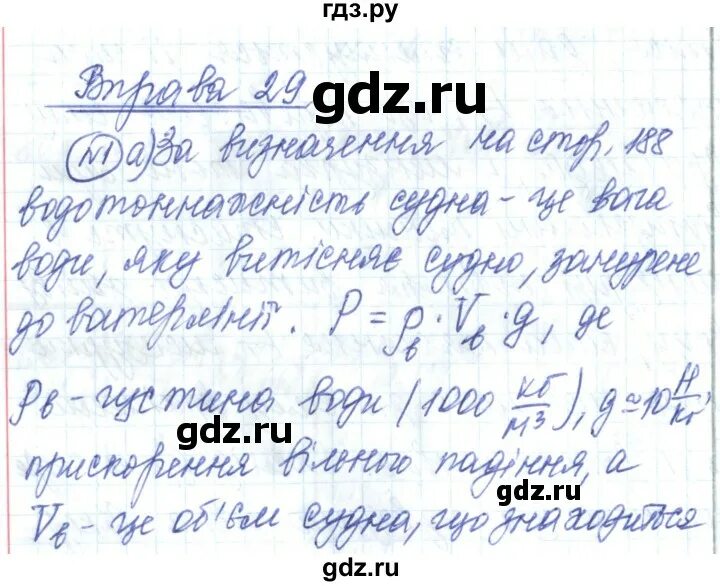 гдз.ру
Вправа 29
gdz.ru
№1 а) За визначення на стор. 188
водотоннажність судна - це вага
води, яку витісняє судно, занурене
gdz.ru
до ватерлінії. P = ρв · Vв · g, де
ρв - густина води (1000 кг/м3), g ≃ 10 Н/кг,
gdz.ru
прискорення вільного падіння, а
gdz.ru
Vв - це об'єм судна, що знаходиться
gdz.ru